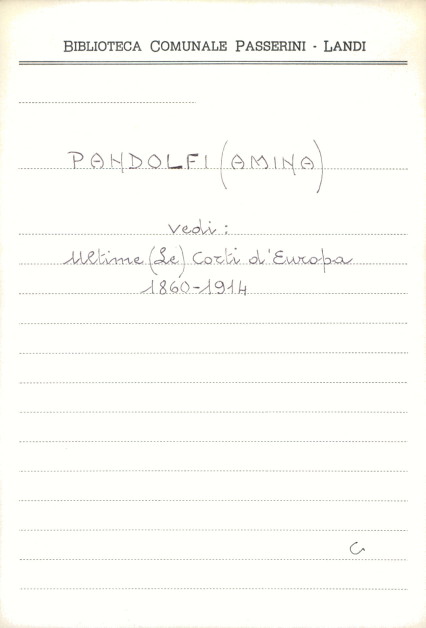 BIBLIOTECA COMUNALE PASSERINI - LANDI
PANDOLFI (AMINA)
vedi :
Ultime (Le) Corti d'Europa
1860-1914
G